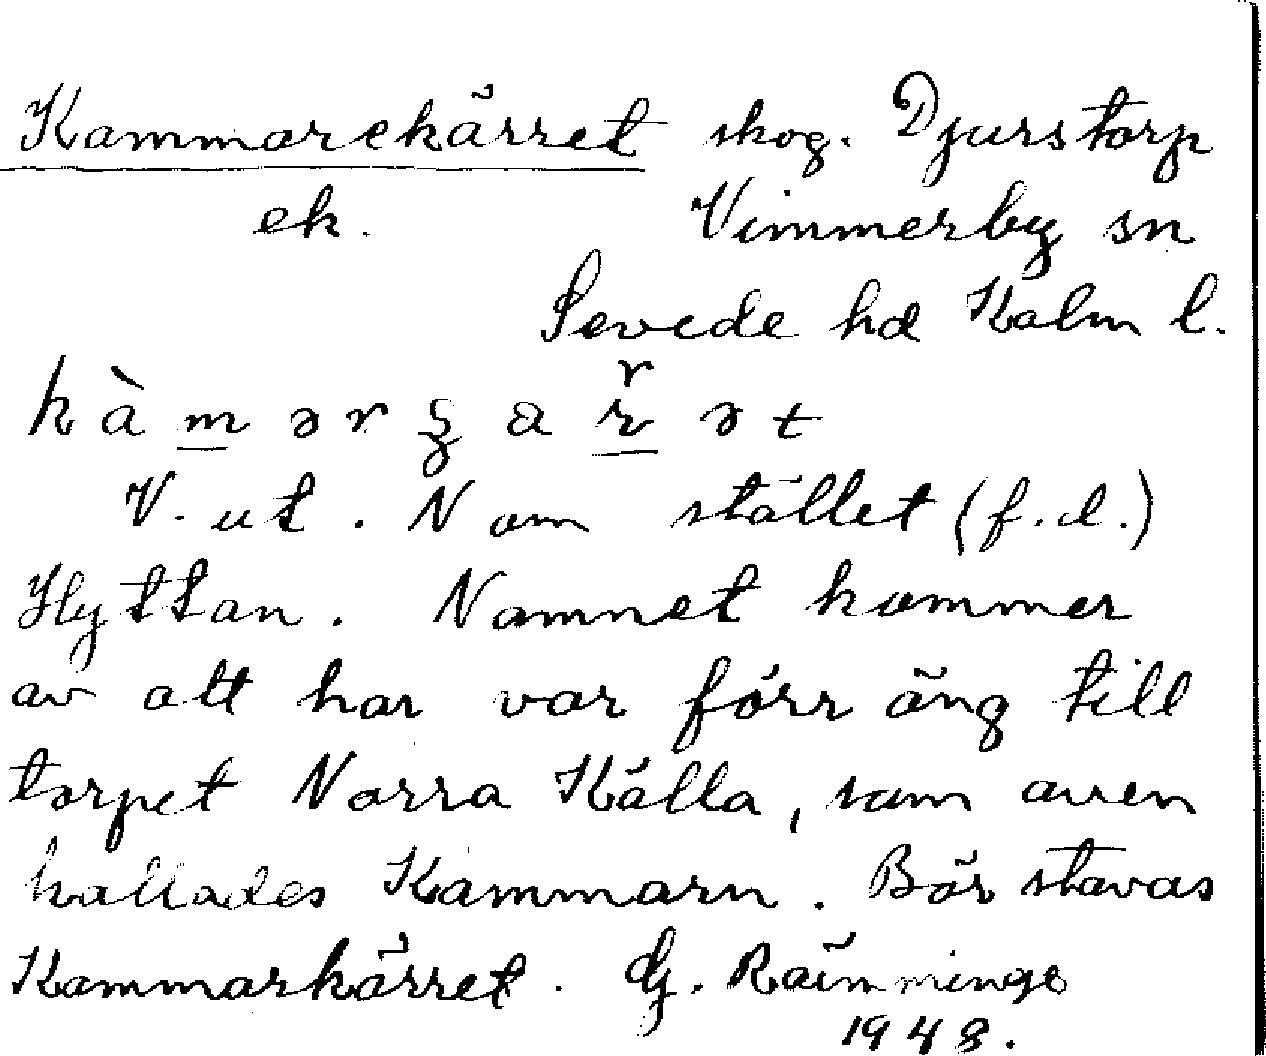 Kammarekärret skog. Djurstorp
ek. Vimmerby sn
Sevede hd Kalm l.
k à m ə r ʒ a r ə t
V. ut. N om stället (f.d.)
Hyttan. Namnet kommer
av att här var förr äng till
torpet Norra Källa, som även
kallades Kammarn. Bör stavas
Kammarkärret. G. Rämminge
1948.